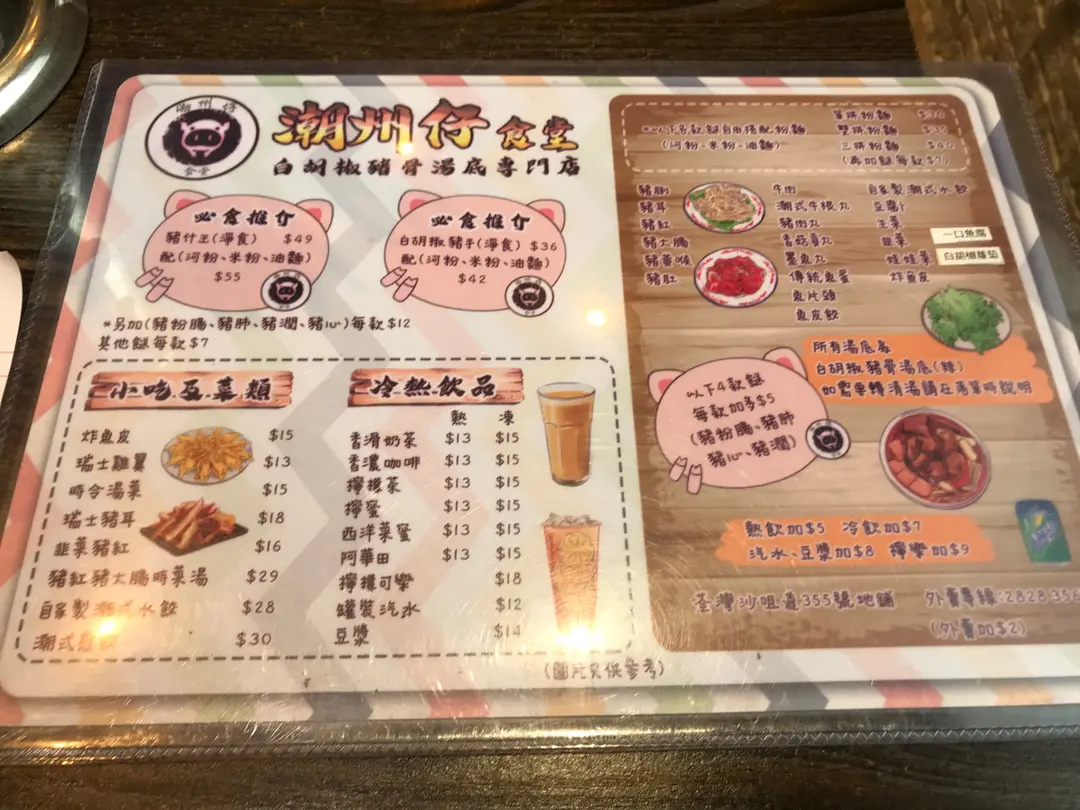 潮州仔
食堂
潮州仔食堂
白胡椒豬骨湯底專門店
必食推介
豬什王(淨食) $49
配(河粉、米粉、油麵)
$55
必食推介
白胡椒豬手(淨食) $36
配(河粉、米粉、油麵)
$42
*另加(豬粉腸、豬肺、豬潤、豬心)每款$12
其他餸每款$7
小吃及菜類
炸魚皮 $15
瑞士雞翼 $13
時令湯菜 $15
瑞士豬耳 $18
韮菜豬紅 $16
豬紅豬大腸時菜湯 $29
自家製潮式水餃 $28
潮式 $30
冷熱飲品
熱 凍
香滑奶茶 $13 $15
香濃咖啡 $13 $15
檸檬茶 $13 $15
檸蜜 $13 $15
西洋菜蜜 $13 $15
阿華田 $13 $15
檸檬可樂 $18
罐裝汽水 $12
豆漿 $14
(圖片只供參考)
單拼粉麵 $30
*以下多款餸自由搭配粉麵 雙拼粉麵 $35
(河粉、米粉、油麵) 三拼粉麵 $40
(再加餸每款$7)
豬脷 牛肉 自家製潮式水餃
豬耳 潮式牛根丸 豆腐卜
豬紅 豬肉丸 生菜
豬大腸 香菇貢丸 韮菜 一口魚腐
豬黃喉 墨魚丸 娃娃菜 白胡椒蘿蔔
豬肚 傳統魚蛋 炸魚皮
魚片頭
魚皮餃
所有湯底為
白胡椒豬骨湯底(辣)
如需要轉清湯請在落單時說明
以下4款餸
每款加多$5
(豬粉腸、豬肺
豬心、豬潤)
熱飲加$5 冷飲加$7
汽水、豆漿加$8 檸樂加$9
荃灣沙咀道355號地舖 外賣專線:2828 356
(外賣加$2)